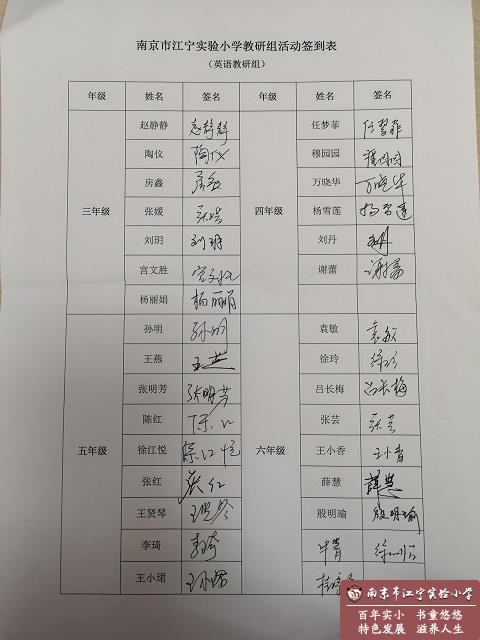 南京市江宁实验小学教研组活动签到表
（英语教研组）
年级 姓名 签名 年级 姓名 签名
赵静静 赵静静 任梦菲 任梦菲
陶仪 陶仪 穆园园 穆园园
房鑫 房鑫 万晓华 万晓华
三年级 张媛 张媛 四年级 杨雪莲 杨雪莲
刘玥 刘玥 刘丹 刘丹
宫文胜 宫文胜 谢蕾 谢蕾
杨丽娟 杨丽娟
孙明 孙明 袁敏 袁敏
王燕 王燕 徐玲 徐玲
张明芳 张明芳 吕长梅 吕长梅
陈红 陈红 张芸 张芸
五年级 徐江悦 徐江悦 六年级 王小香 王小香
张红 张红 薛慧 薛慧
王贤琴 王贤琴 殷明瑜 殷明瑜
李琦 李琦
王小珺 王小珺
南京市江宁实验小学
百年实小 书童悠悠
特色发展 滋养人生